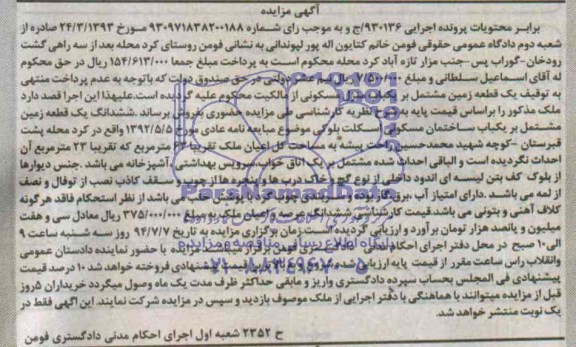 آگهی مزایده
برابر محتویات پرونده اجرایی ۹۳۰۱۳۶/ج و به موجب رای شماره ۹۳۰۹۷۱۸۳۸۲۰۰۱۸۸ مورخ ۲۴/۳/۱۳۹۳ صادره از
شعبه دوم دادگاه عمومی حقوقی فومن خانم کتایون اله پور لیوندانی به نشانی فومن روستای کرد محله بعد از سه راهی گشت
رودخان-گوراب پس-جنب مزار تازه آباد کرد محله محکوم است به پرداخت مبلغ جمعا ۱۵۴/۶۱۳/۰۰۰ ریال در حق محکوم
له آقای اسماعیل سلطانی و مبلغ ریال دولتی در حق صندوق دولت که باتوجه به عدم پرداخت منتهی
به توقیف یک قطعه زمین مشتمل بر یکباب مسکونی از مالکیت محکوم علیه گردیده است.علیهذا این اجرا قصد دارد
ملک مذکور را براساس قیمت پایه به شرح نظریه کارشناسی طی مزایده حضوری بفروش برساند .ششدانگ یک قطعه زمین
مشتمل بر یکباب ساختمان مسکونی اسکلت بلوکی موضوع مبایعه نامه عادی مورخ ۱۳۹۲/۵/۵ واقع در کرد محله پشت
قبرستان -کوچه شهید محمدحسین راحت پیشه به مساحت کل اعیان ملک تقریبا مترمربع که تقریبا ۲۳ مترمربع آن
احداث نگردیده است و الباقی احداث شده مشتمل بر یک اتاق خواب،سرویس بهداشتی، آشپزخانه می باشد .جنس دیوارها
از بلوک کف بتن لیسه ای اندود داخلی از نوع گچ و خاک درب ها و پنجره ها از چوب و سقف کاذب نصب از توفال و نصف
از لمه می باشد .دارای امتیاز آب ،برق،گاز بوده و سربندی چوب گرد با پوشش حلب می باشد از نظر استحکام فاقد هرگونه
کلاف آهنی و بتونی می باشد.قیمت کارشناسی ششدانگ عرصه و اعیان ملک به مبلغ ۳۷۵/۰۰۰/۰۰۰ ریال معادل سی و هفت
میلیون و پانصد هزار تومان برآورد و ارزیابی گردیده است.زمان برگزاری مزایده به تاریخ ۹۴/۷/۷ روز سه شنبه ساعت ۹
الی۱۰ صبح در محل دفتر اجرای احکام مزایده با حضور نماینده دادستان عمومی
وانقلاب راس ساعت مقرر از قیمت پایه ارزیابی شده شروع و به قیمت پیشنهادی فروخته خواهد شد ۱۰ درصد قیمت
پیشنهادی فی المجلس بحساب سپرده دادگستری واریز و مابقی حداکثر ظرف مدت یک ماه وصول میگردد خریداران ۵روز
قبل از مزایده میتوانند با هماهنگی با دفتر اجرایی از ملک موصوف بازدید و سپس در مزایده شرکت نمایند. این آگهی فقط در
یک نوبت منتشر خواهد شد.
ح ۲۳۵۲ شعبه اول اجرای احکام مدنی دادگستری فومن
ParsNamadData
پایگاه اطلاع رسانی مناقصه و مزایده